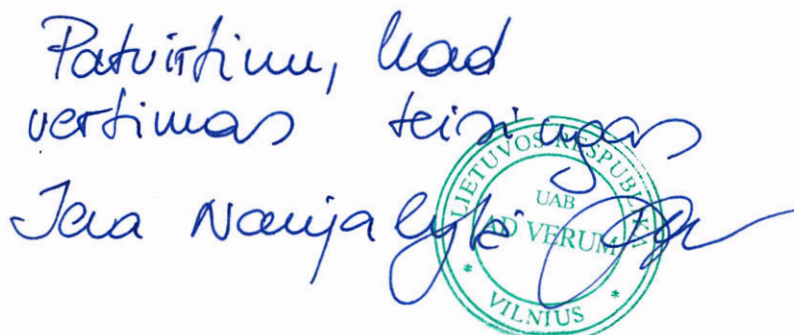 Patvirtinu, kad
vertimas teisingas
LIETUVOS RESPUBLIKA
UAB
AD VERUM
* VILNIUS *